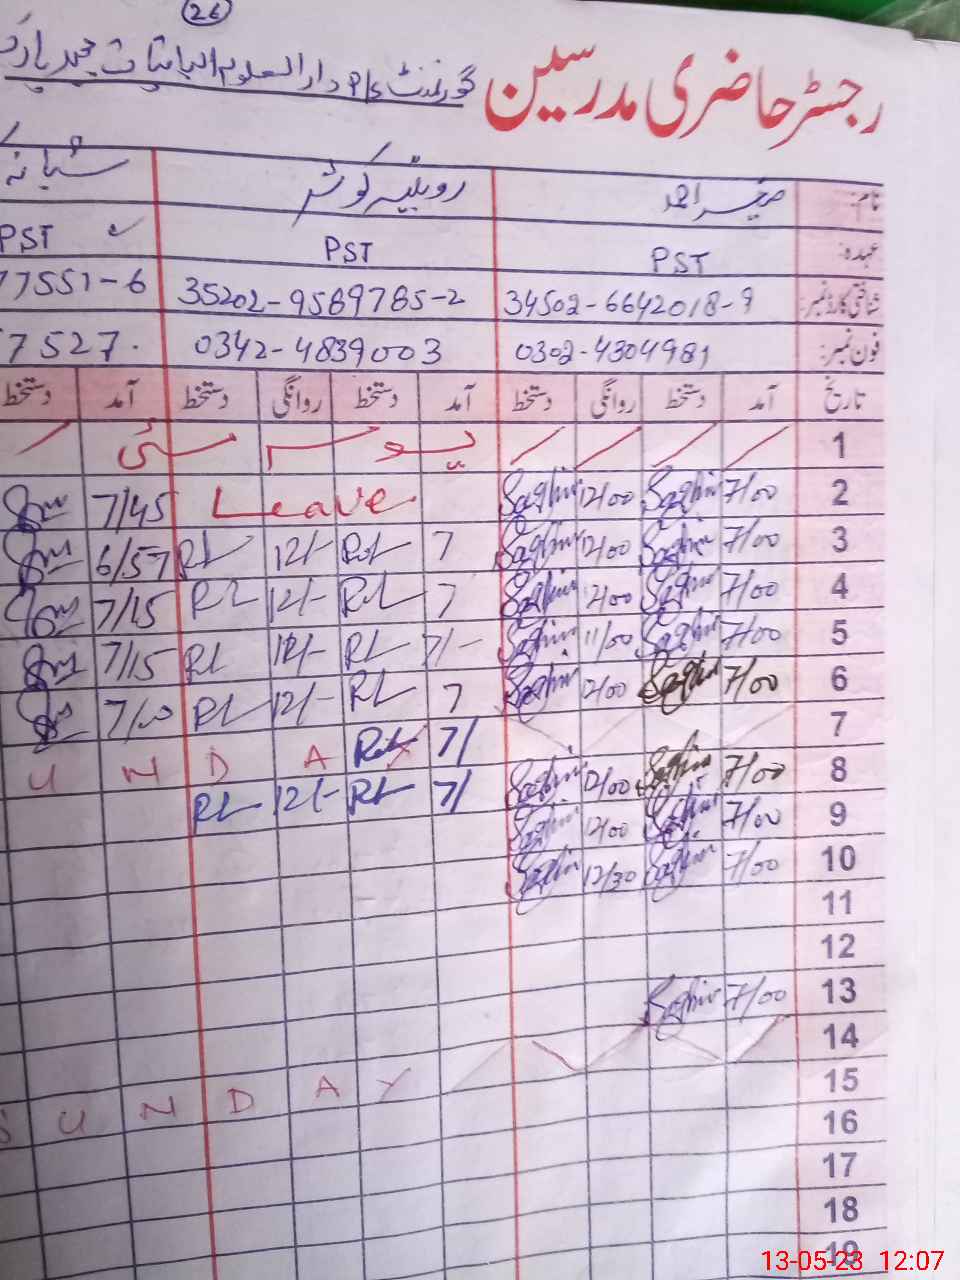 26
رجسٹر حاضری مدرسین
گورنمنٹ P/S دارالعلوم البنات
نام: صغیر احمد روبینہ کوثر شبانہ
عہدہ: PST PST PST
شناختی کارڈ نمبر: 34502-6642018-9 35202-9589785-2 77551-6
فون نمبر: 0302-4304981 0342-4839003 7527
تاریخ آمد دستخط روانگی دستخط آمد دستخط روانگی دستخط آمد دستخط
1 / / / /
2 7/00 Saghir 12/00 Saghir Leave 7/45
3 7/00 Saghir 12/00 Saghir 7 RL 12/- RL 6/57
4 7/00 Saghir 12/00 Saghir 7 RL 12/- RL 7/15
5 7/00 Saghir 11/00 Saghir 7/- RL 12/- RL 7/15
6 7/00 Saghir 12/00 Saghir 7 RL 12/- RL 7/00
7 U N D A Y
8 7/00 Saghir 12/00 Saghir 7/ RL
9 7/00 Saghir 12/00 Saghir 7/ RL 12/- RL
10 7/00 Saghir 12/30 Saghir
11
12
13 7/00 Saghir
14 S U N D A Y
15
16
17
18
19
13-05-23 12:07